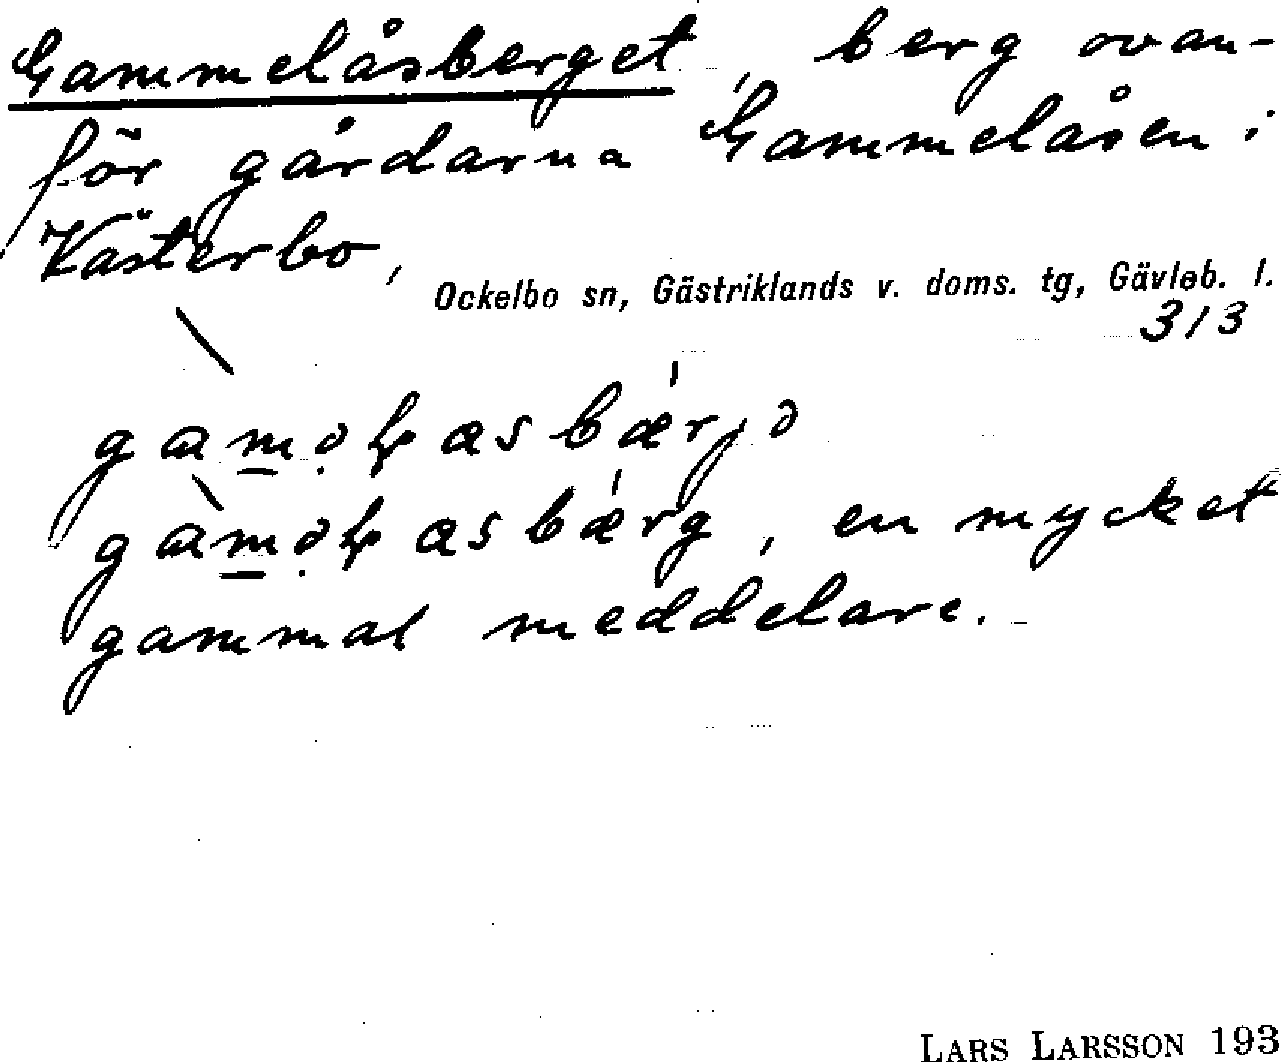 Gammelåsberget, berg ovan-
för gårdarna Gammelåsen i
Västerbo,
Ockelbo sn, Gästriklands v. doms. tg, Gävleb. l.
313
en mycket
gammal meddelare. -
LARS LARSSON 193